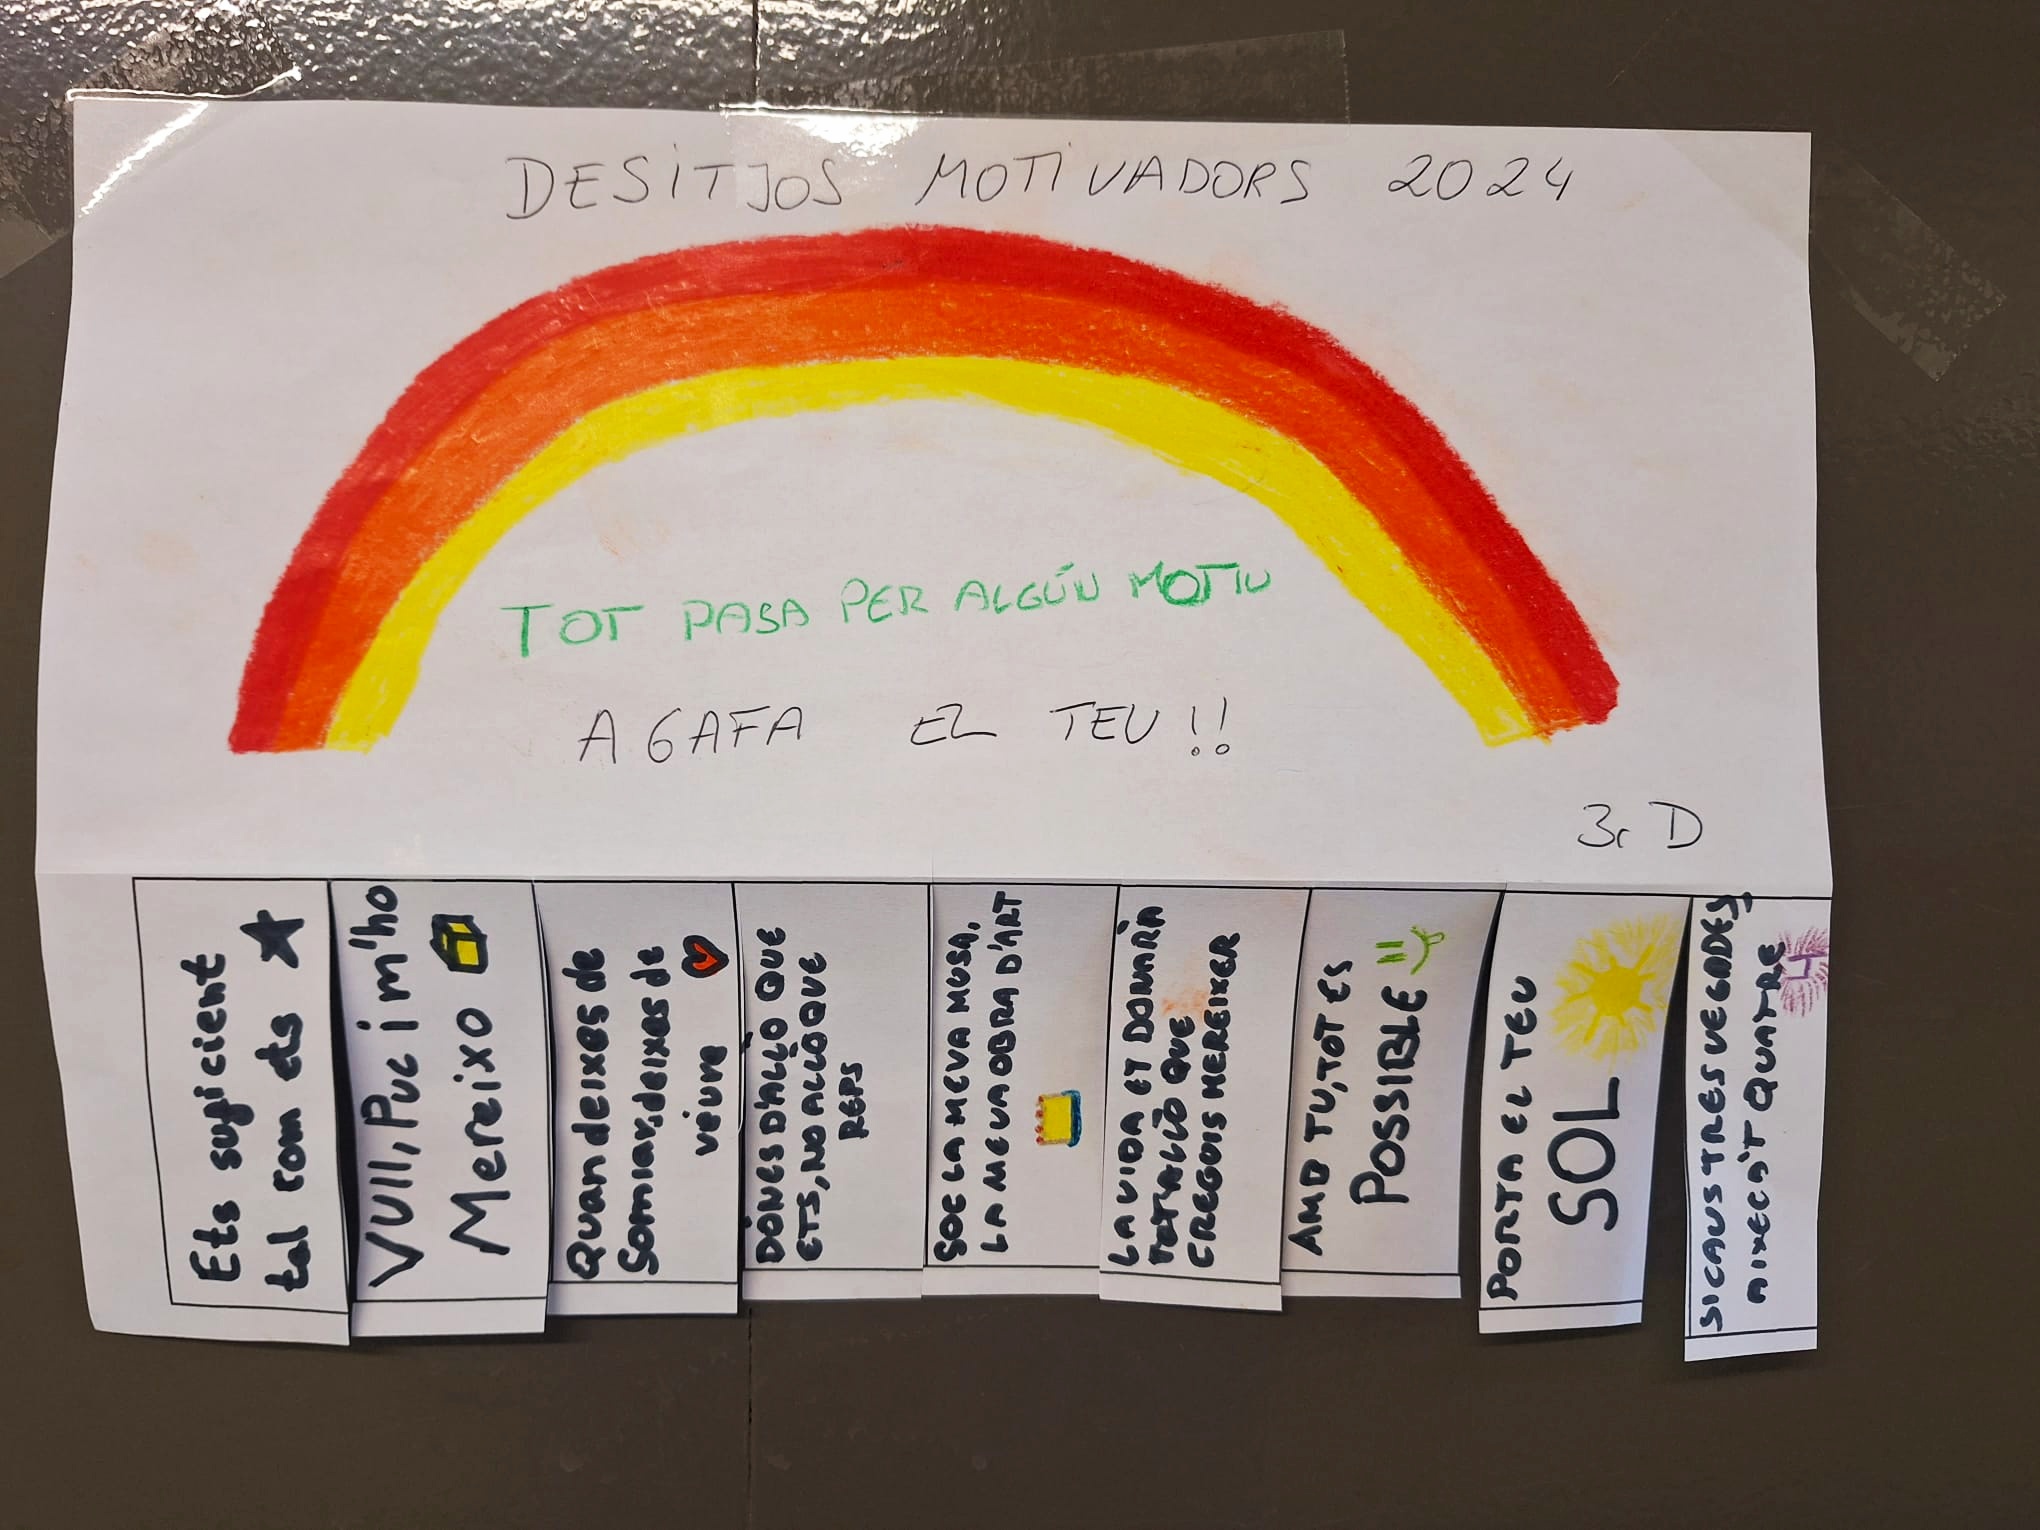 DESITJOS MOTIVADORS 2024
TOT PASA PER ALGÚN MOTIU
AGAFA EL TEU!!
3r D
Ets suficient
tal com ets
VUll, Puc i m'ho
Mereixo
Quan deixes de
Somiar, deixes de
viure
DÓNES D'ALLÒ QUE
ETS, NO ALLÒ QUE
REPS
SOC LA MEVA MUSA,
LA MEVA OBRA D'ART
LA VIDA ET DONARÀ
TOT ALLÒ QUE
CREGUIS MEREIXER
AMB TU, TOT ES
POSSIBLE
PORTA EL TEU
SOL
SI CAUS TRES VEGADES
AIXECA'T QUATRE
4